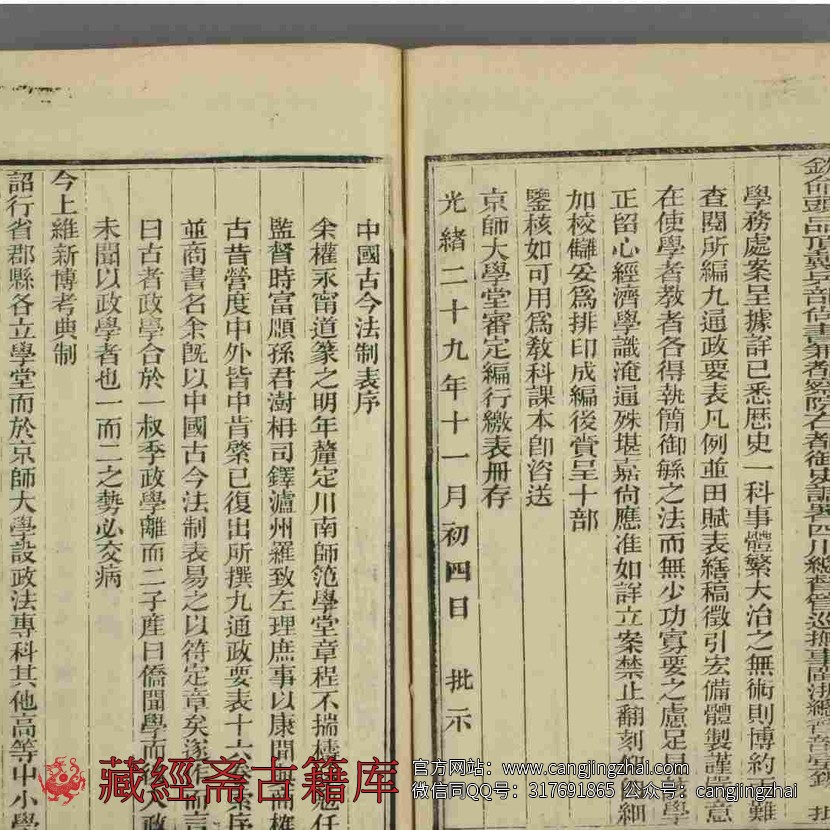 學務處案呈據詳已悉歷史一科事體繁大治之無術則博約
難
查閱所編九通政要表凡例並田賦表繕稿徵引宏備體製謹
意
在使學者教者各得執簡御緐之法而無少功寡要之慮足
學
正留心經濟學識淹通殊堪嘉尚應准如詳立案禁止翻刻
細
加校讎妥爲排印成編後賫呈十部
鑒核如可用爲教科課本卽咨送
京師大學堂審定編行繳表冊存
光緒二十九年十一月初四日 批示
中國古今法制表序
余權永甯道篆之明年釐定川南師範學堂章程不揣
任
監督時富順孫君澍枏司鐸瀘州羅致左理庶事以康聞
古昔營度中外皆中肯綮已復出所撰九通政要表十六
序
並商書名余旣以中國古今法制表易之以符定章矣遂作而言
曰古者政學合於一叔季政學離而二子產曰僑聞學而
入政
未聞以政學者也一而二之勢必交病
今上維新博考典制
詔行省郡縣各立學堂而於京師大學設政法專科其他高等中小學
藏經斋古籍库
官方网站：www.cangjingzhai.com
微信同QQ号：317691865 公众号：cangjingzhai